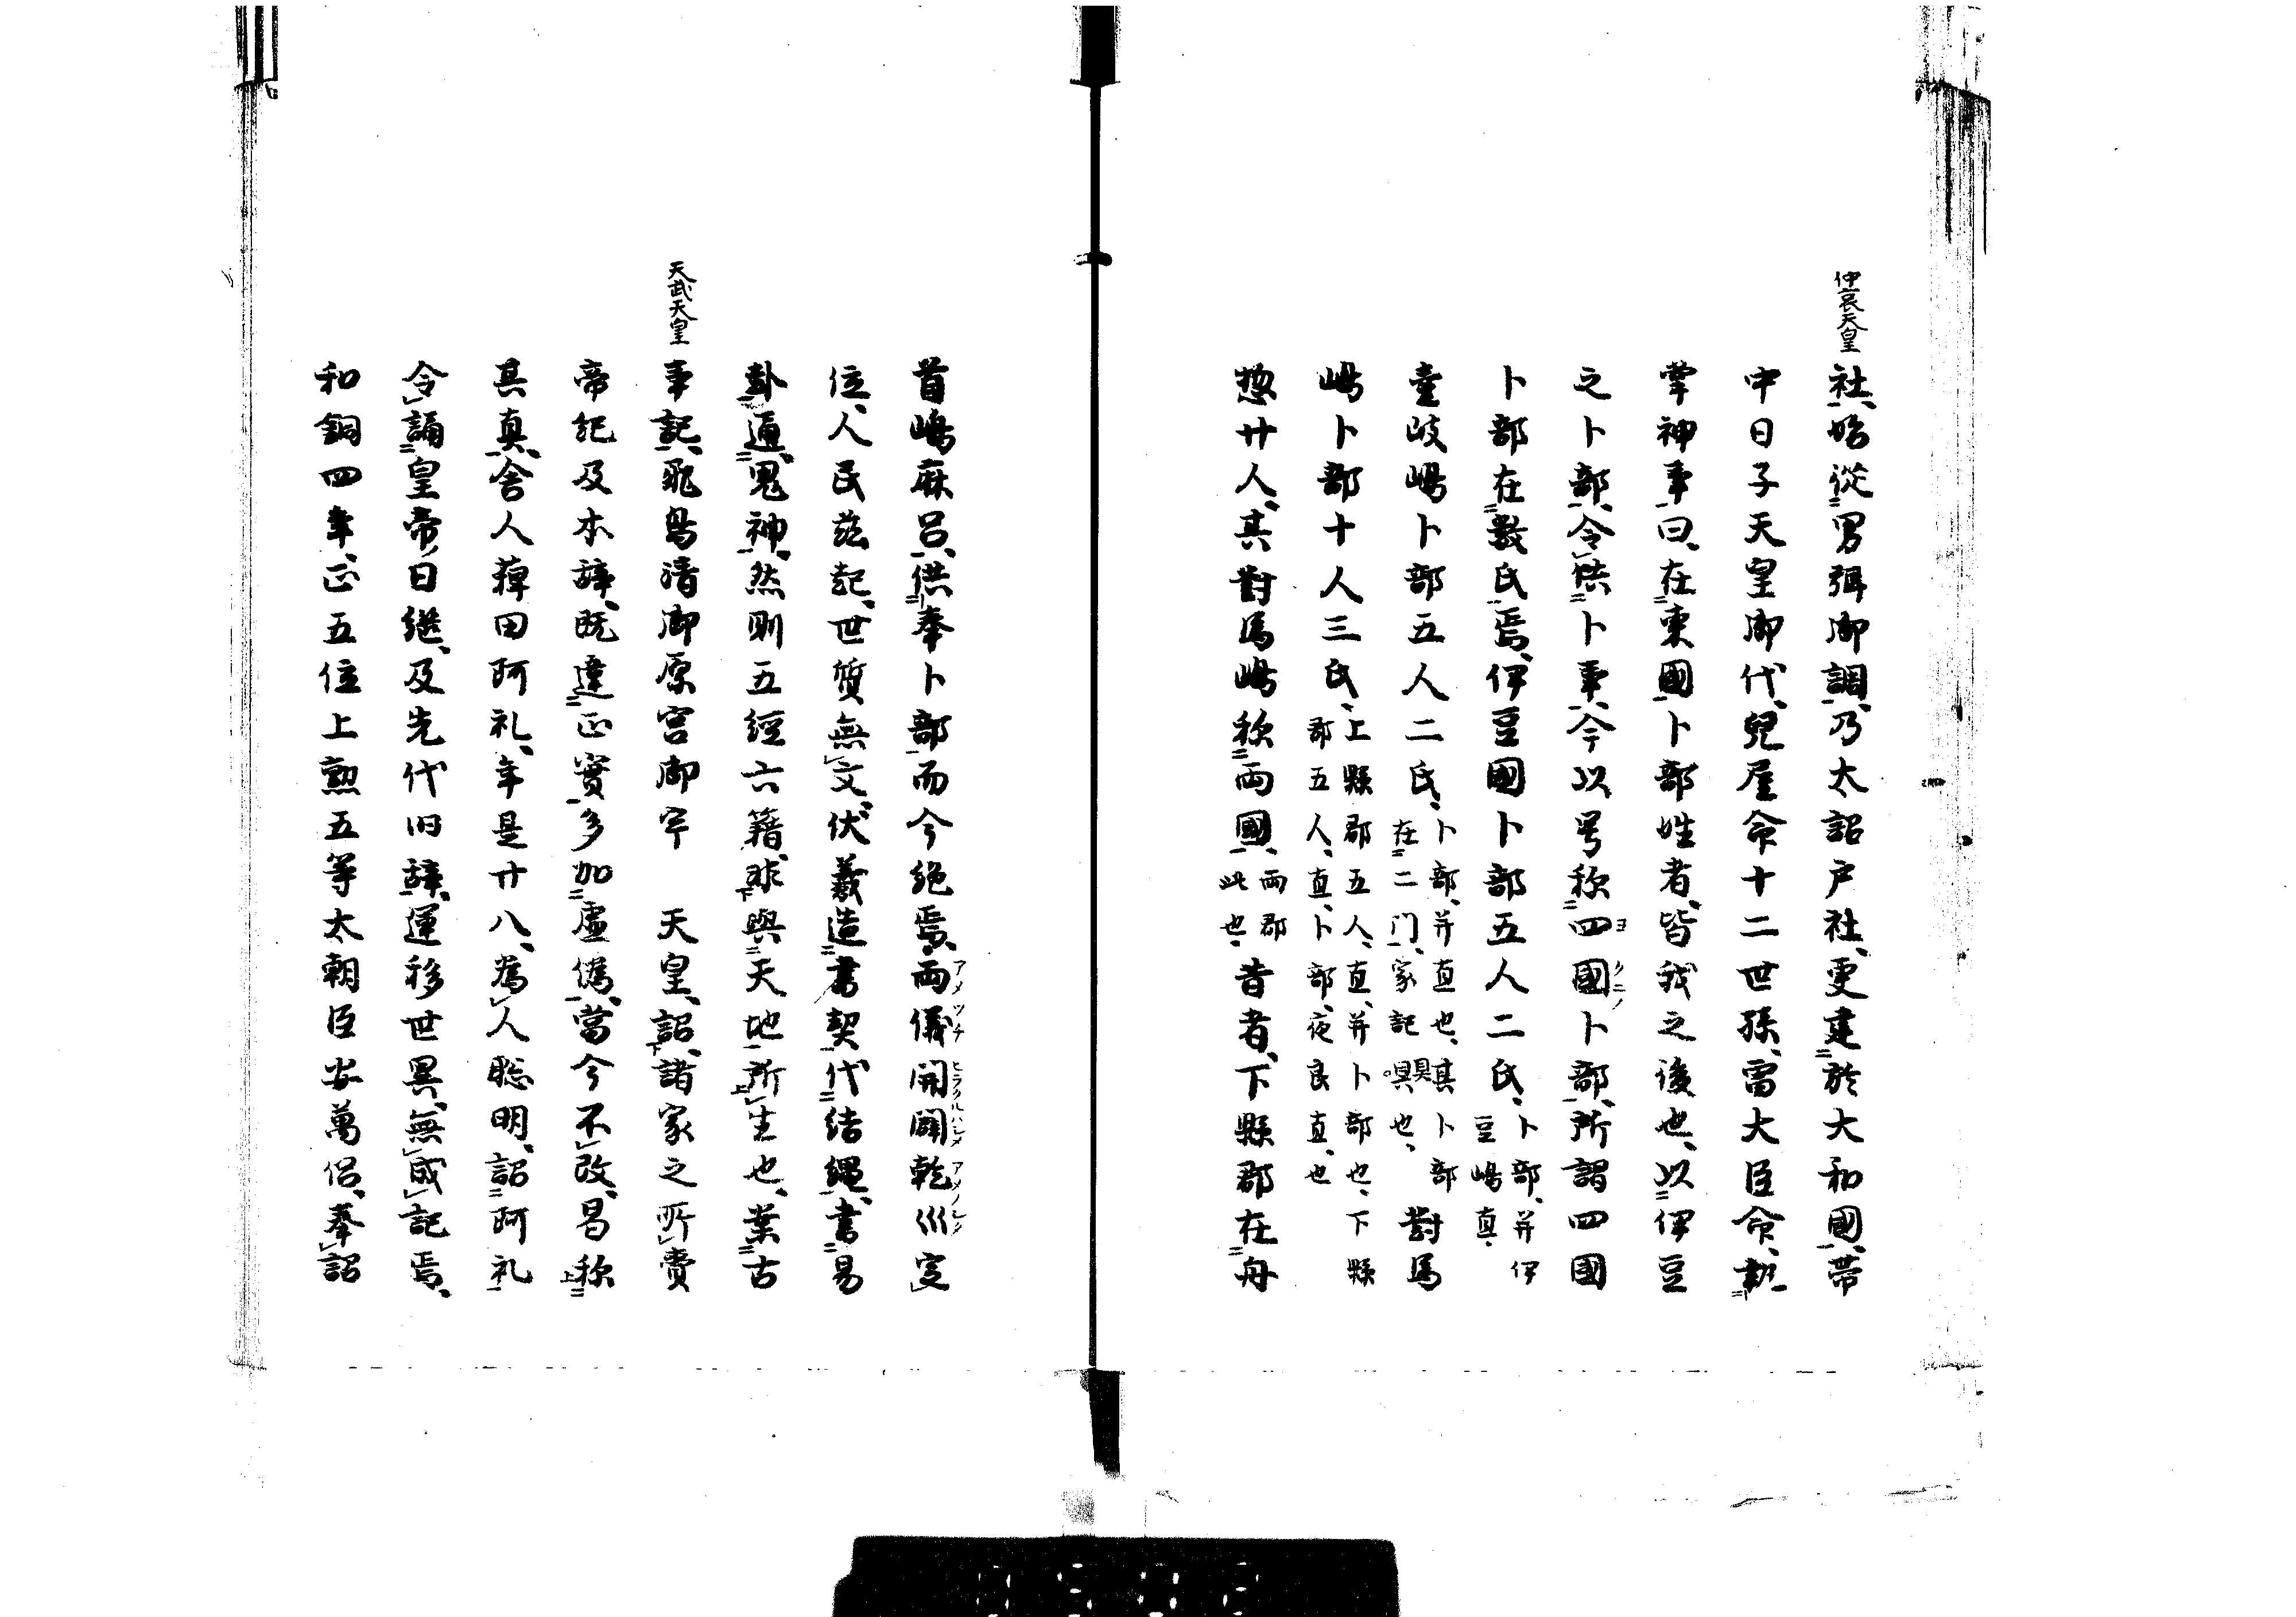 仲哀天皇
社、始從男弭御調、乃太詔戸社、更建於大和國、帯
中日子天皇御代、兒屋命十二世孫、雷大臣命、執
掌神事曰、在東國卜部姓者、皆我之後也、以伊豆
之卜部、令供卜事、今以号称四國卜部、所謂四國
ヨ クニノ
卜部在數氏焉、伊豆國卜部五人二氏、卜部、并伊
豆嶋直、
壹岐嶋卜部五人二氏、卜部、并直也、其卜部
在二门、家記具也、對馬
嶋卜部十人三氏、上縣郡五人、直、并卜部也、下縣
郡五人、直、卜部、夜良直、也
惣廿人、其對馬嶋称両國、両郡
此也、昔者、下縣郡在舟
首嶋麻呂、供奉卜部而今絶焉、両儀開闢乾巛定
アメツチ ヒラクルハシメ アメノシタ
位、人民茲起、世質無文、伏羲造書契代結縄、書易
卦通鬼神、然則五經六籍、非與天地所生也、葉古
天武天皇
事記、飛鳥清御原宮御宇 天皇、詔、諸家之所賷
帝紀及本辞、既違正實多加虚偽、當今不改、曷称
其真、舎人稗田阿礼、年是廿八、為人聡明、詔阿礼
令誦皇帝日継、及先代旧辞、運移世異、無成記焉、
和銅四年、正五位上勲五等太朝臣安萬侶、奉詔